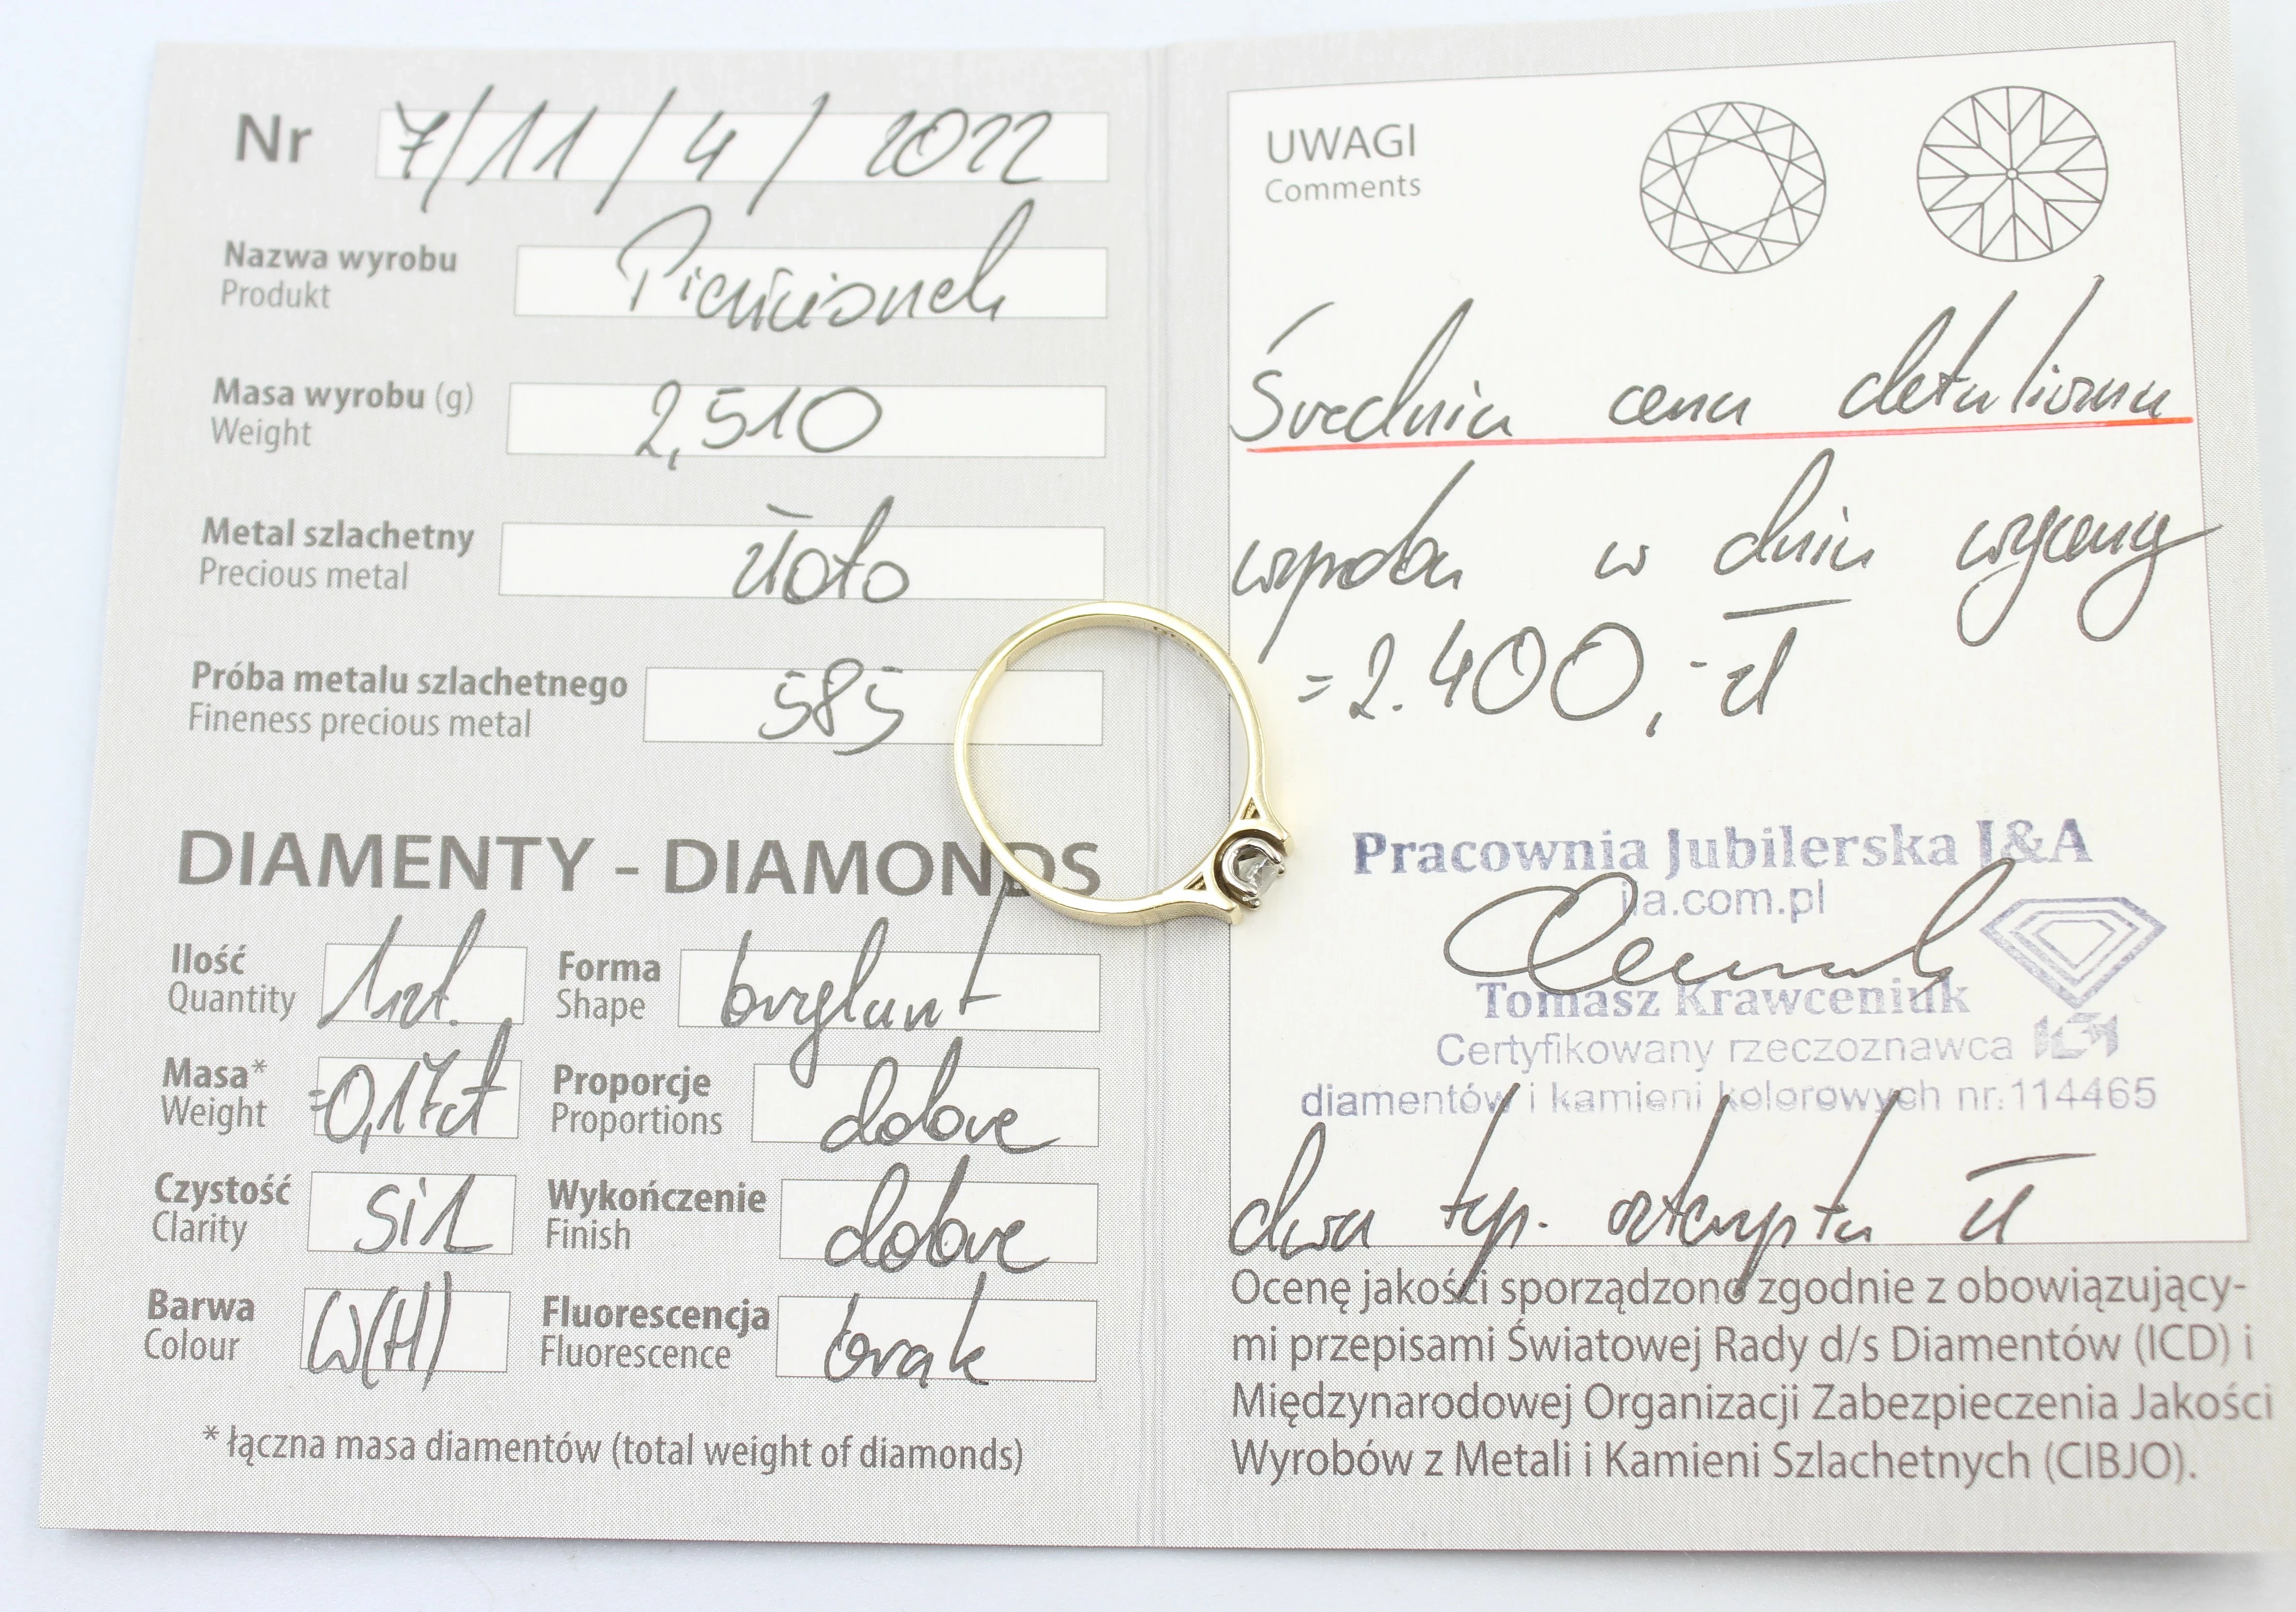 Nr 7/11/4/2022
Nazwa wyrobu Pierścionek
Produkt
Masa wyrobu (g) 2,510
Weight
Metal szlachetny złoto
Precious metal
Próba metalu szlachetnego 585
Fineness precious metal
DIAMENTY - DIAMONDS
Ilość 1szt. Forma brylant
Quantity Shape
Masa* =0,17ct Proporcje dobre
Weight Proportions
Czystość Si1 Wykończenie dobre
Clarity Finish
Barwa W(H) Fluorescencja brak
Colour Fluorescence
* łączna masa diamentów (total weight of diamonds)
UWAGI
Comments
Średnia cena detaliczna
wyrobu w dniu wyceny
= 2.400,- zł
Pracownia Jubilerska I&A
ila.com.pl
Tomasz Krawceniuk
Certyfikowany rzeczoznawca
diamentów i kamieni kolorowych nr.114465
dwa tys. czterysta zł
Ocenę jakości sporządzono zgodnie z obowiązujący-
mi przepisami Światowej Rady d/s Diamentów (ICD) i
Międzynarodowej Organizacji Zabezpieczenia Jakości
Wyrobów z Metali i Kamieni Szlachetnych (CIBJO).